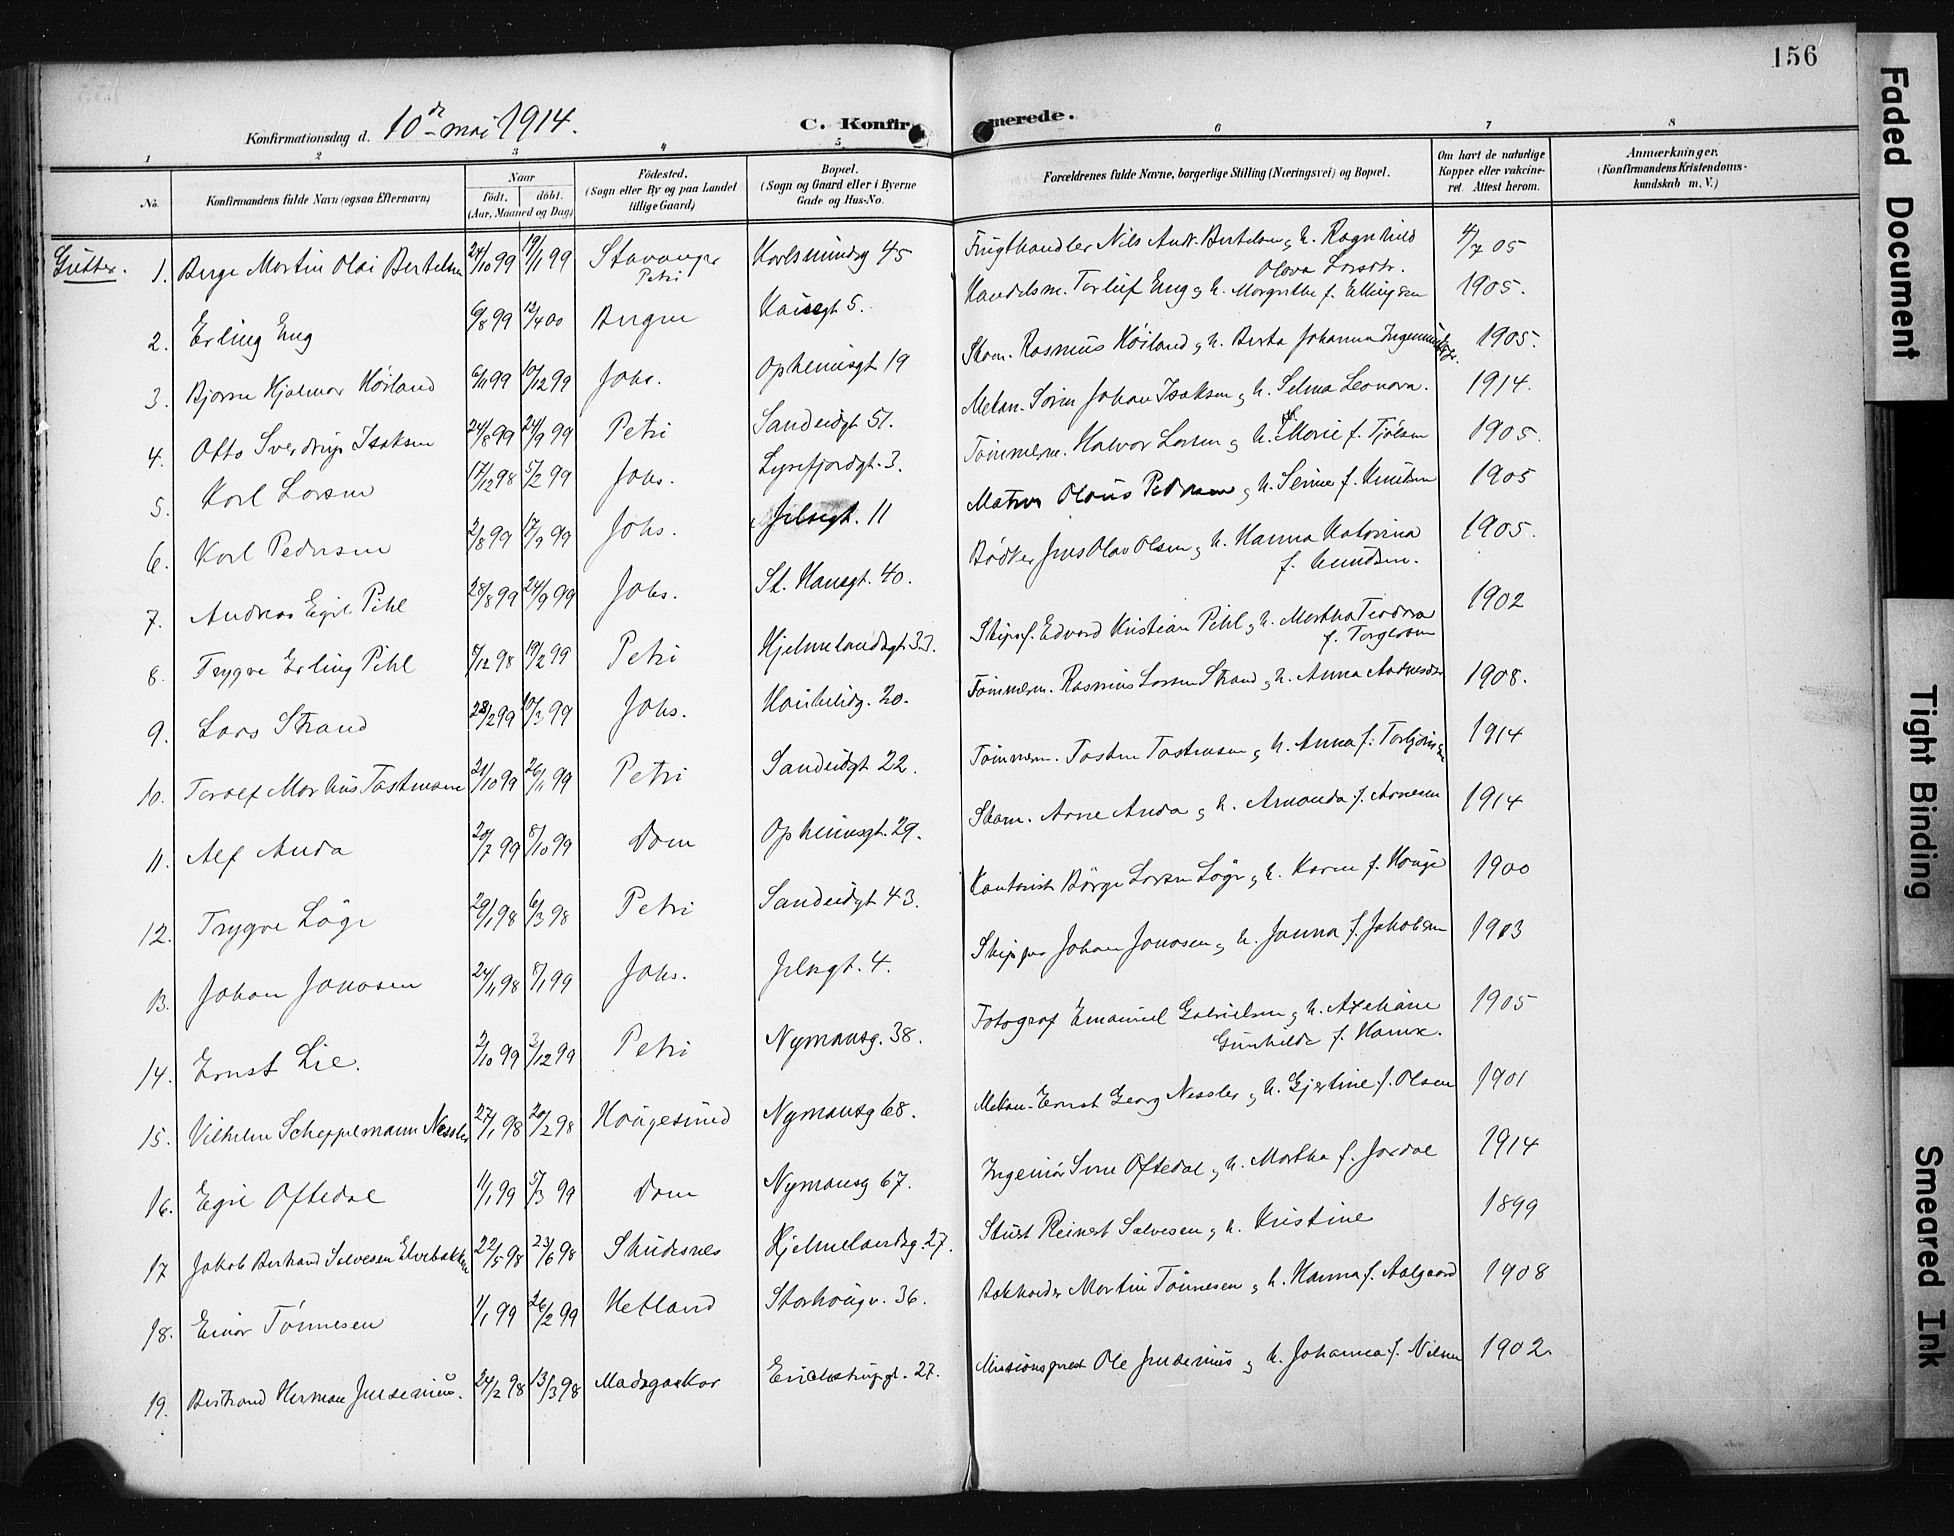 156
Konfirmationsdag d. 10de mai 1914.
C. Konfirmerede.
1 2 3 4 5 6 7 8
No.
Konfirmandens fulde Navn (ogsaa Efternavn)
Naar
født. døbt.
(Aar, Maaned og Dag)
Fødested.
(Sogn eller By og paa Landet
tillige Gaard)
Bopæl.
(Sogn og Gaard eller i Byerne
Gade og Hus-No.
Forældrenes fulde Navne, borgerlige Stilling (Næringsvei) og Bopæl.
Om havt de naturlige
Kopper eller vakcine-
ret. Attest herom.
Anmærkninger.
(Konfirmandens Kristendoms-
kundskab m. V.)
Gutter.
1. Børge Martin Olai Bertelsen 24/10 99 19/11 99 Stavanger Petri Karlsmindeg 45 Frugthandler Nils Andr. Bertelsen og h. Ragnhild Olava Larsdr. 4/7 05
2. Erling Eng 6/8 99 12/4 00 Bergen Kaisegt 5. Handelsm. Torleif Eng og h. Margrethe f. Ellingsen 1905.
3. Bjarne Hjalmar Høiland 6/11 99 10/12 99 Johs. Opheimsgt 19 Skom. Rasmus Høiland og h. Berta Johanna 1905.
4. Otto Sverdrup Isaksen 24/8 99 24/9 99 Petri Sandeidgt 51. Mekan. Sören Johan Isaksen og h. Selma Leonora. 1914.
5. Karl Larsen 17/12 98 5/2 99 Johs. Lysefjordgt. 3. Tømmerm. Halvor Larsen og h. Marie f. Tjølsen 1905.
6. Karl Pedersen 2/8 99 17/9 99 Johs. Jelsegt. 11 Matros Olaus Pedersen og h. Serine f. Knudsen 1905
7. Andreas Egil Pihl 28/8 99 24/9 99 Johs. St. Hansgt. 40. Bødker Jens Olav Olsen og h. Hanna Katarina f. Knudsen. 1905.
8. Trygve Erling Pihl 5/12 98 19/2 99 Petri Hjelmelandsgt. 33. Skipsf. Edvard Kristian Pihl og h. Martha Teodora f. Torgersen 1902
9. Lars Strand 28/2 99 10/3 99 Johs. 20. Tømmerm. Rasmus Larsen Strand og h. Anna 1908.
10. Toralf Markus Tastensen 21/10 99 26/11 99 Petri Sandeidgt 22. Tømmerm. Tasten Tastensen og h. Anna f. 1914
11. Alf Anda 20/7 99 8/10 99 Dom Opheimsgt. 29. Skom. Arne Anda og h. Amanda f. Arnesen 1914
12. Trygve Løge 29/1 98 6/3 98 Petri Sandeidgt 43. Kontorist Børge Larsen Løge og h. Karen f. Hauge 1900
13. Johan Jonasen 24/11 98 8/1 99 Johs. Jelsegt. 4. Skipper Johan Jonasen og h. Janna f. Jakobsen 1913
14. Ernst Lie. 2/10 99 3/12 99 Petri Nymansg. 38. Fotograf Emanuel Gabrielsen og h. Axeliane Gunhilde f. 1905
15. Vilhelm Scheppelmann Nessler 27/1 98 20/2 98 Haugesund Nymansg 68. Mekan. Ernst Georg Nessler og h. Gjertine f. Olsen 1901
16. Egil Oftedal 11/1 99 5/3 99 Dom Nymansg 67. Ingeniør Sven Oftedal og h. Martha f. Jordal 1914
17 Jakob Bertrand Salvesen Elvebakken 22/5 98 23/6 98 Skudesnes Hjelmelandsg. 27. Reinert Salvesen og h. Kristine 1899
18. Einar Tønnesen 1/1 99 26/2 99 Hetland Storhougv. 36. Bokholder Martin Tønnesen og h. Hanna f. Aalgaard 1908
19. Bertrand Herman Jensenius. 24/2 98 13/3 98 Madagaskar Erichstrupgt. 27. Missionsprest Ole Jensenius og h. Johanna f. Nilsen 1902.
Faded Document
Tight Binding
Smeared Ink